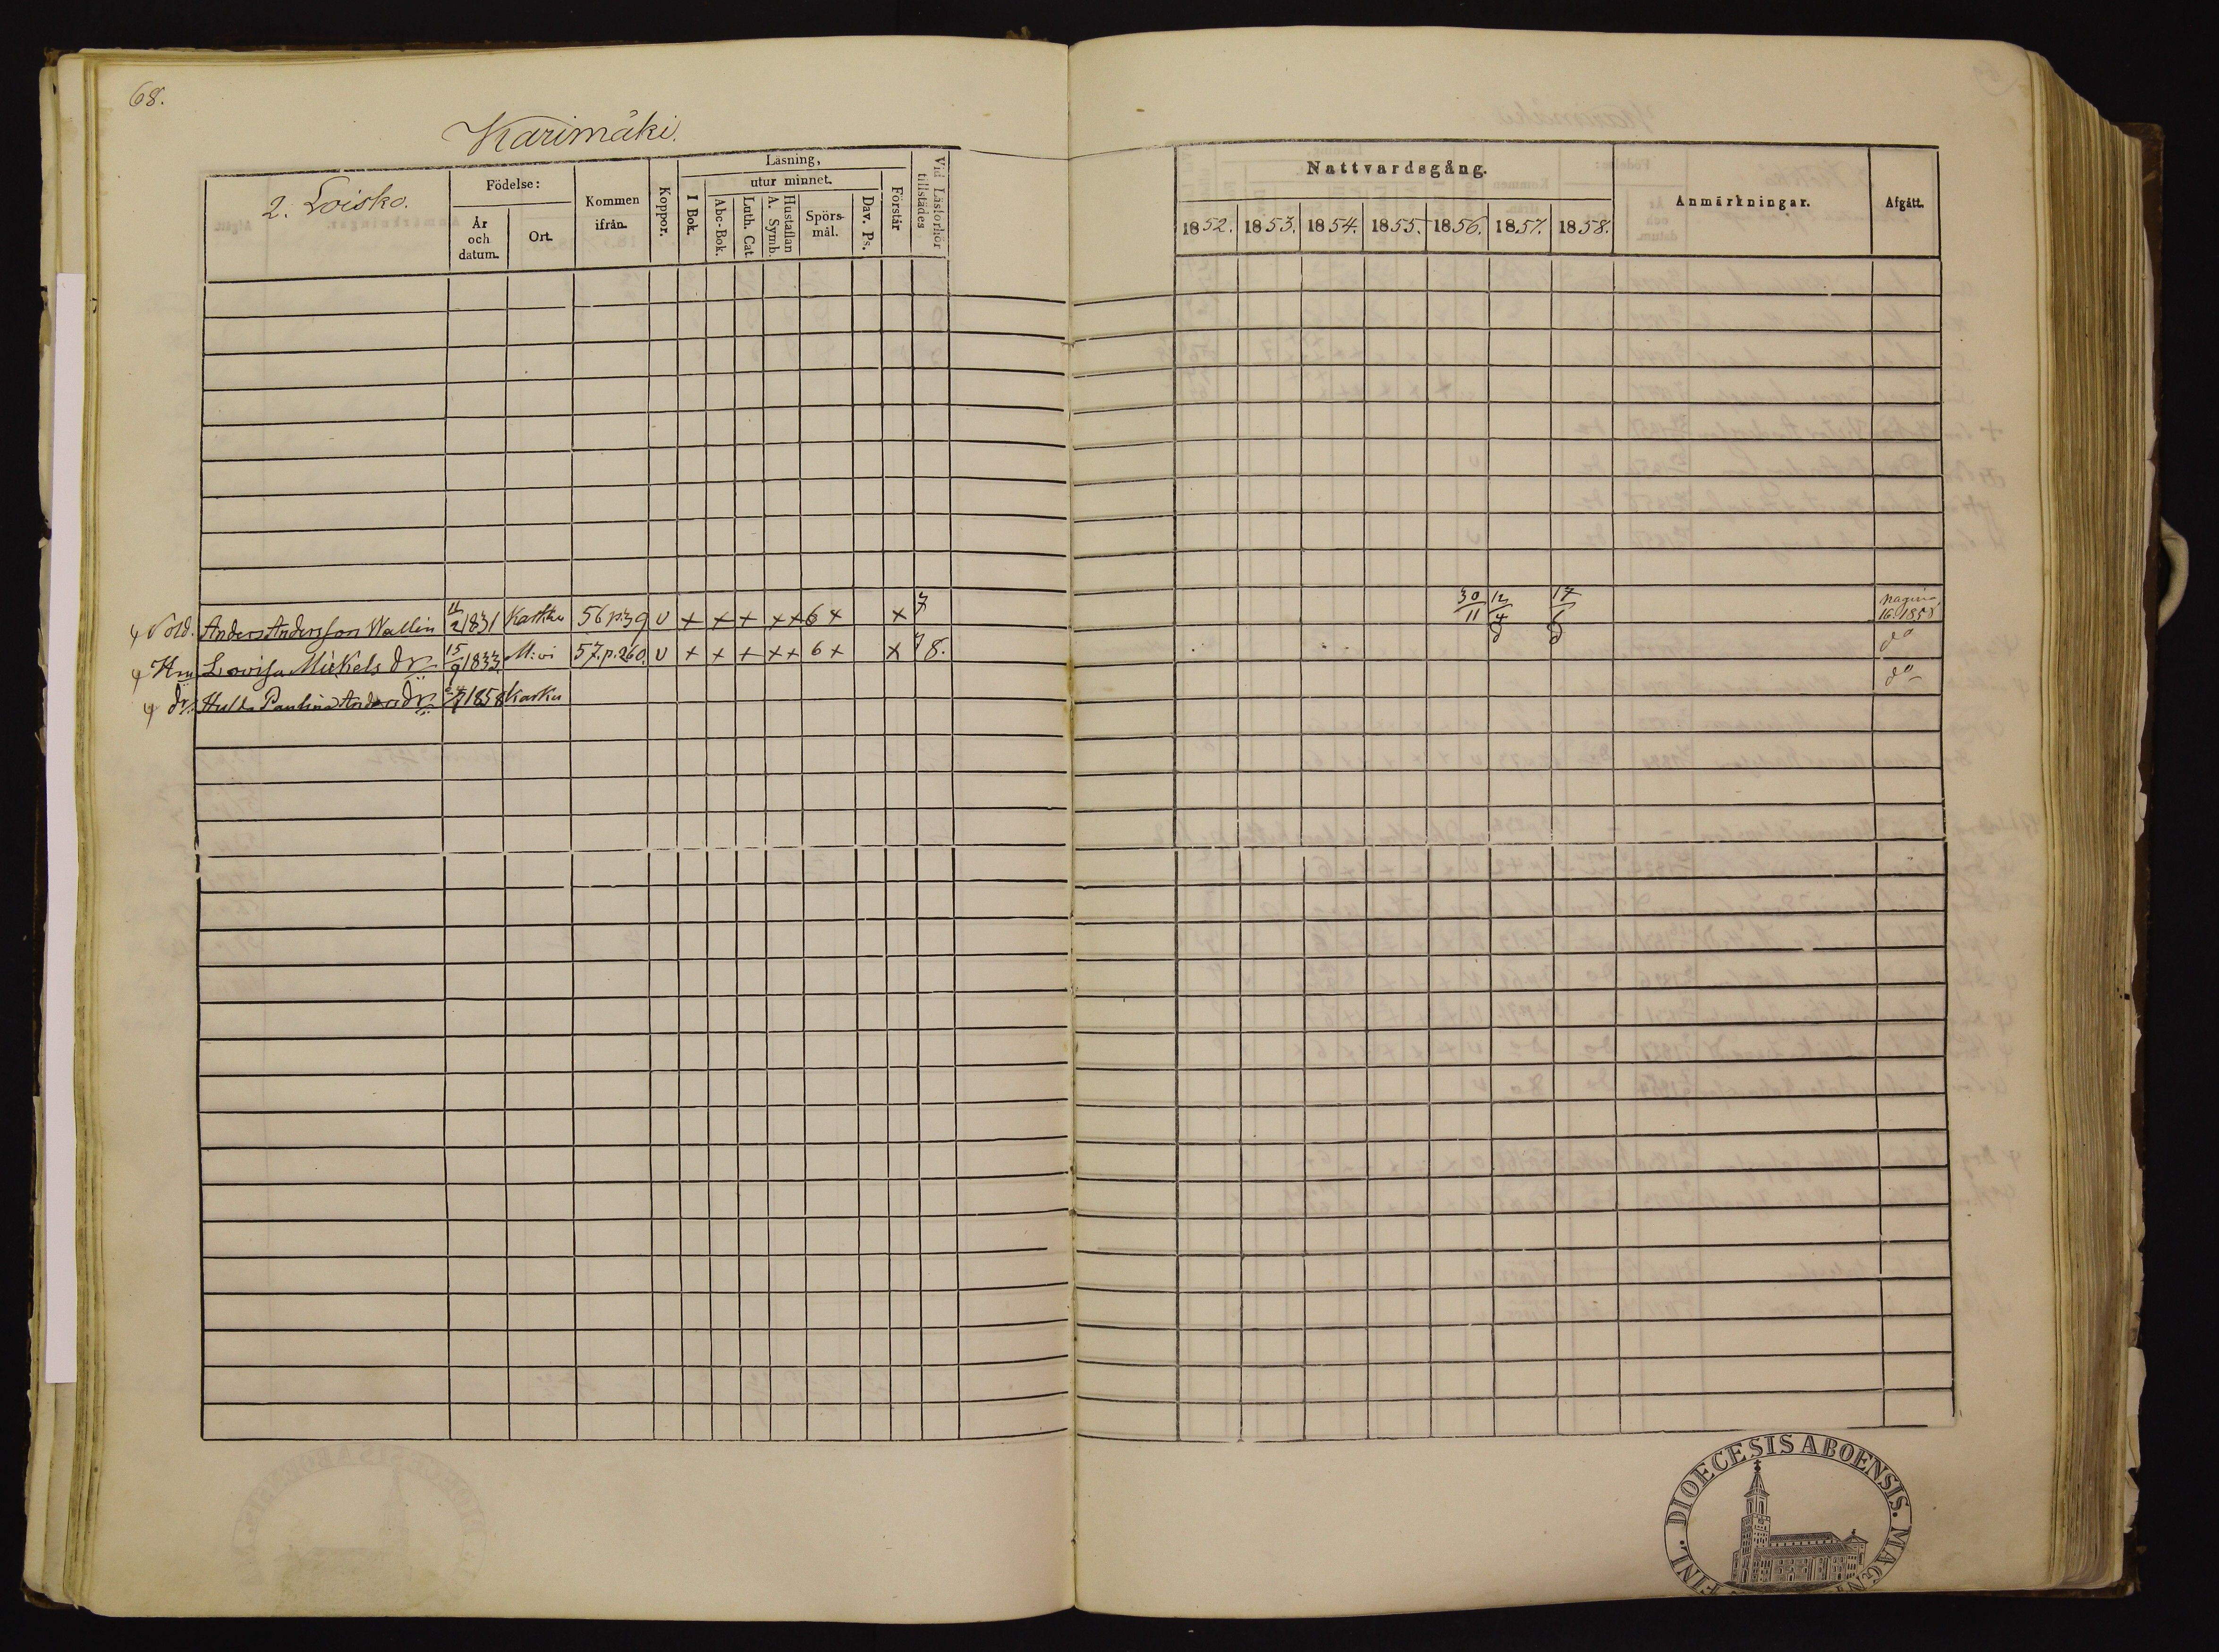 68.
Karimäki.
2. Loisko.
Födelse:
År och datum.
Ort.
Kommen ifrån.
Koppor.
Läsning,
I Bok.
utur minnet.
Abc-Bok.
Luth. Cat.
Hustaflan A. Symb.
Spörs- mål.
Dav. Ps.
Förstår
Vid Läsförhör tillstädes
Nattvardsgång.
1852. 1853. 1854. 1855. 1856. 1857. 1858.
Anmärkningar.
Afgått.
Sold. Anders Andersson Wallin 11/2 1831 Karkku 56 p.39 v + + + ++ 6 + x 7 30/11 12/4 17/6 pagina 16. 1858
Hu Lovisa Mickels dr 15/9 1833 M:vi 57.p.260. v + + + ++ 6 + x 7 8. d d do
dr. Hulda Paulina Anders dr 1858 Karku do
DIOECESIS ABOENSIS. MAGN FINL.